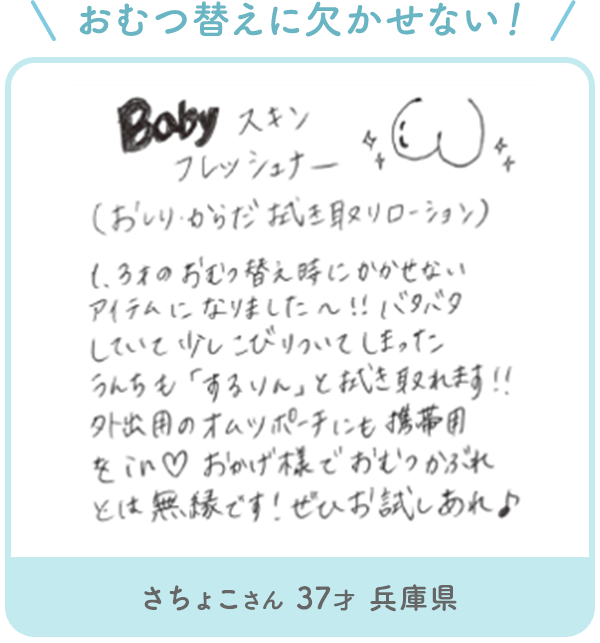 おむつ替えに欠かせない！
Baby スキン
フレッシュナー
(おしり・からだ 拭き取りローション)
1、3才のおむつ替え時にかかせない
アイテムになりました〜!! バタバタ
していて少しこびりついてしまった
うんちも「するりん」と拭き取れます!!
外出用のオムツポーチにも携帯用
をin♡ おかげ様でおむつかぶれ
とは無縁です! ぜひお試しあれ♪
さちょこさん 37才 兵庫県